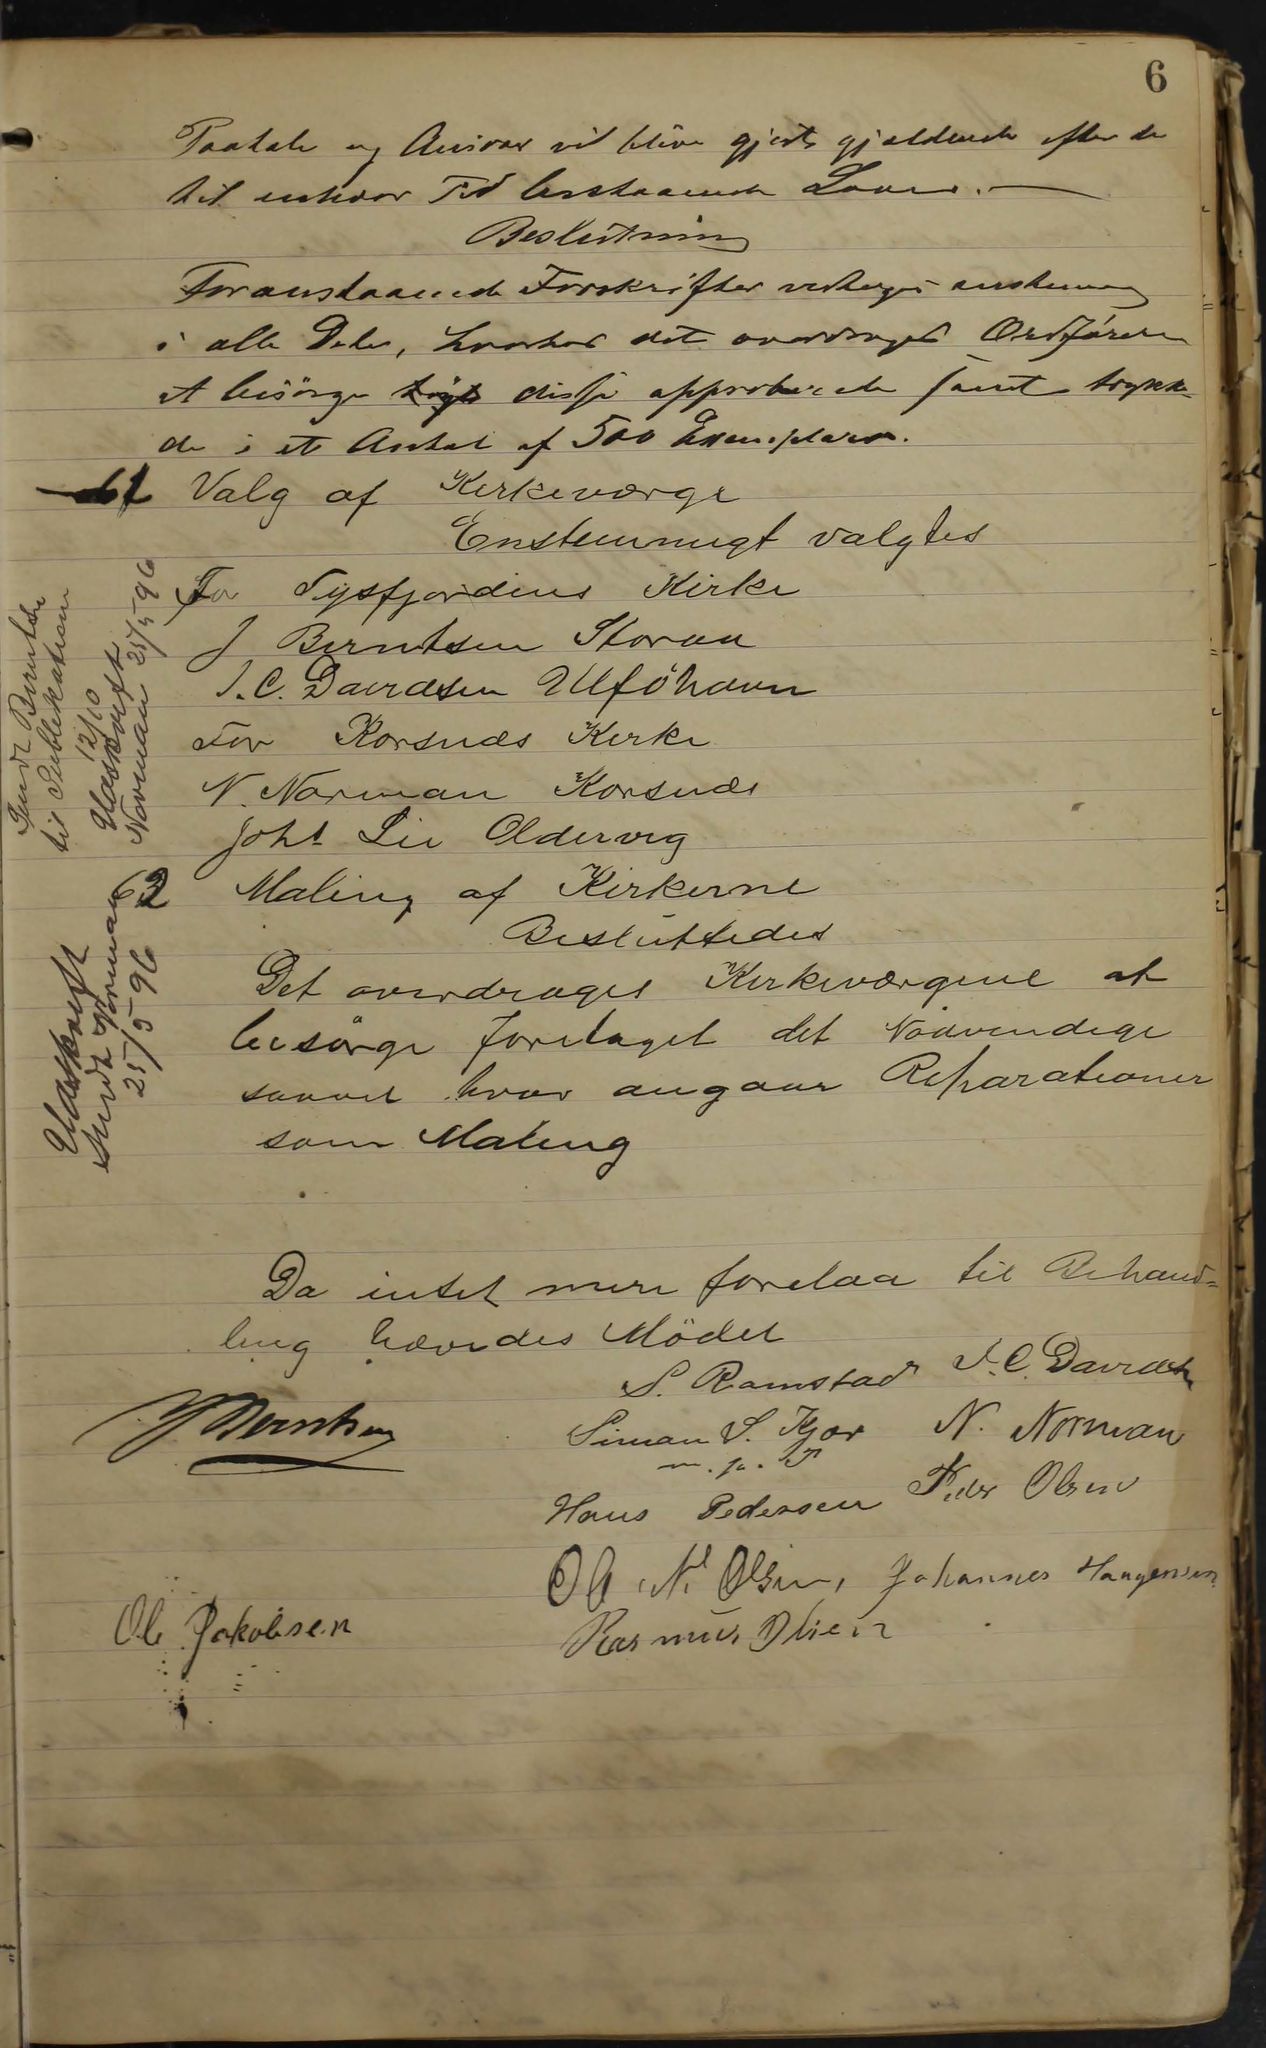 6
Paatale og Ansvar vil blive gjort gjældende efter de
til enhver Tid bestaaende Love. —
Beslutning
Foranstaaende Forskrifter vedtages enstemmig
i alle Dele, hvorhos det overdrages Ordføreren
at besörge disse approberede samt trykk-
de i et Antal af 500 Exemplarer.
61 Valg af Kirkeværge
Enstemmigt valgtes
For Tysfjordens Kirke
J Berntsen Storaa
J. C. Davidsen Ulföhavn
For Korsnæs Kirke
N. Norman Korsnæs
Joht Lie Oldervig
Sendt Berntsen
til Publikation
12/10
Udskrift
Norman 25/5 96
62 Maling af Kirkerne
Besluttedes
Det overdrages Kirkeværgene at
besörge foretaget det Nödvendige
saavel hvor angaar Reparationer
som Maling
Udskrift
sendt Norman
25/5 96
Da intet mere forelaa til Behand=
ling hævedes Mödet
S. Ramstad J. C. Davidsen
J Berntsen
Siman S. Kjær N. Norman
m. p. P
Hans Pedersen Peder Olsen
Ole N. Olsen, Johannes Haagensen
Ole Jakobsen Rasmus Olsen